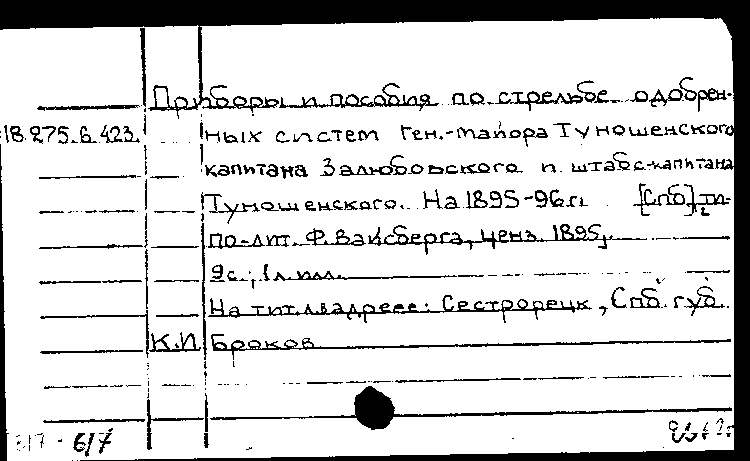 Приборы и пособия по стрельбе одобрен-
18.275.6.423.
ных систем Ген.-майора Туношенского
капитана Залюбовского и штабс-капитана
Туношенского. На 1895-96 гг. [Спб], ти-
по-лит. Ф. Вайсберга, ценз. 1895,.
9с.; 1 л. илл.
На тит. л. адрес: Сестрорецк, Спб. губ.
К.И Броков
617 - 617